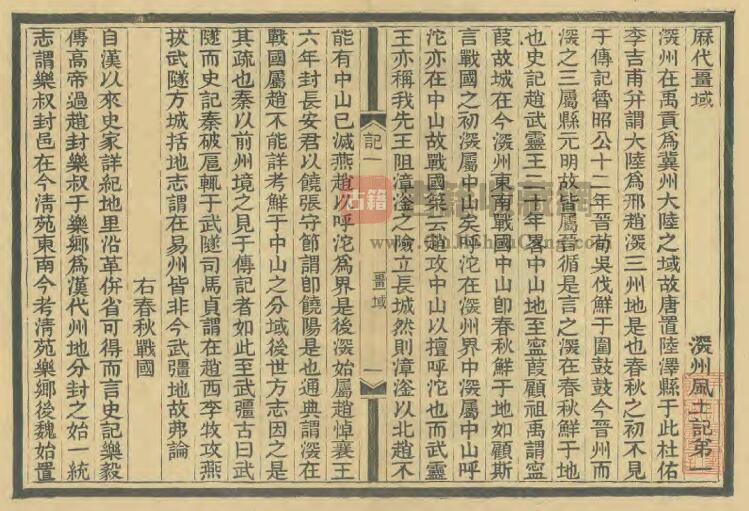 厤代畺域　深州風土記第一
深州在禹貢爲冀州大陸之域故唐置陸澤縣于此杜佑
李吉甫幷謂大陸爲邢趙深三州地是也春秋之初不見
于傳記魯昭公十二年晉荀吳伐鮮于圍鼓鼓今晉州而
深之三屬縣元明故皆屬晉循是言之深在春秋鮮于地
也史記趙武靈王二十年畧中山地至寍葭顧祖禹謂寍
葭故城在今深州東南戰國中山卽春秋鮮于地如顧斯
言戰國之初深屬中山矣呼沱在深州界中深屬中山呼
沱亦在中山故戰國策云趙攻中山以擅呼沱也而武靈
王亦稱我先王阻漳滏之險立長城然則漳滏以北趙不
記一　畺域　一
能有中山已滅燕趙以呼沱爲界是後深始屬趙悼襄王
六年封長安君以饒張守節謂卽饒陽是也通典謂深在
戰國屬趙不能詳考鮮于中山之分域後世方志因之是
其疏也秦以前州境之見于傳記者如此至武彊古曰武
隧而史記秦破扈輒于武隧司馬貞謂在趙西李牧攻燕
拔武隧方城括地志謂在易州皆非今武彊地故弗論
右春秋戰國
自漢以來史家詳紀地里沿革倂省可得而言史記樂毅
傳高帝過趙封樂叔于樂鄉爲漢代州地分封之始一統
志謂樂叔封邑在今清苑東南今考清苑樂鄉後魏始置
古籍